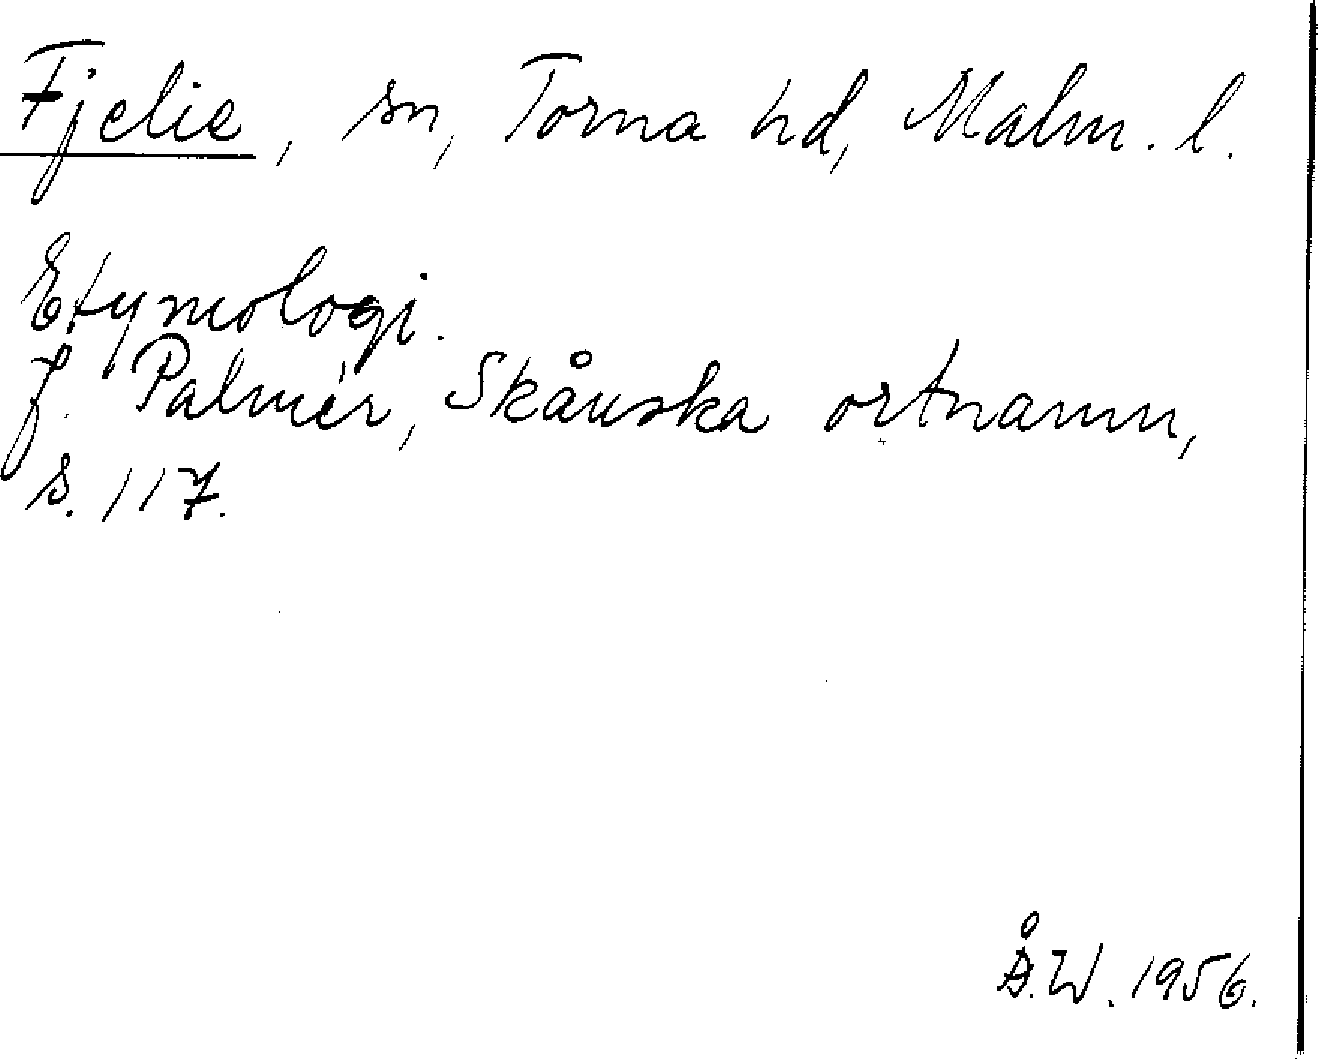 Fjelie, sn, Torna hd, Malm. l.
Etymologi.
J. Palmér, Skånska ortnamn,
s. 117.
Å.W. 1956.